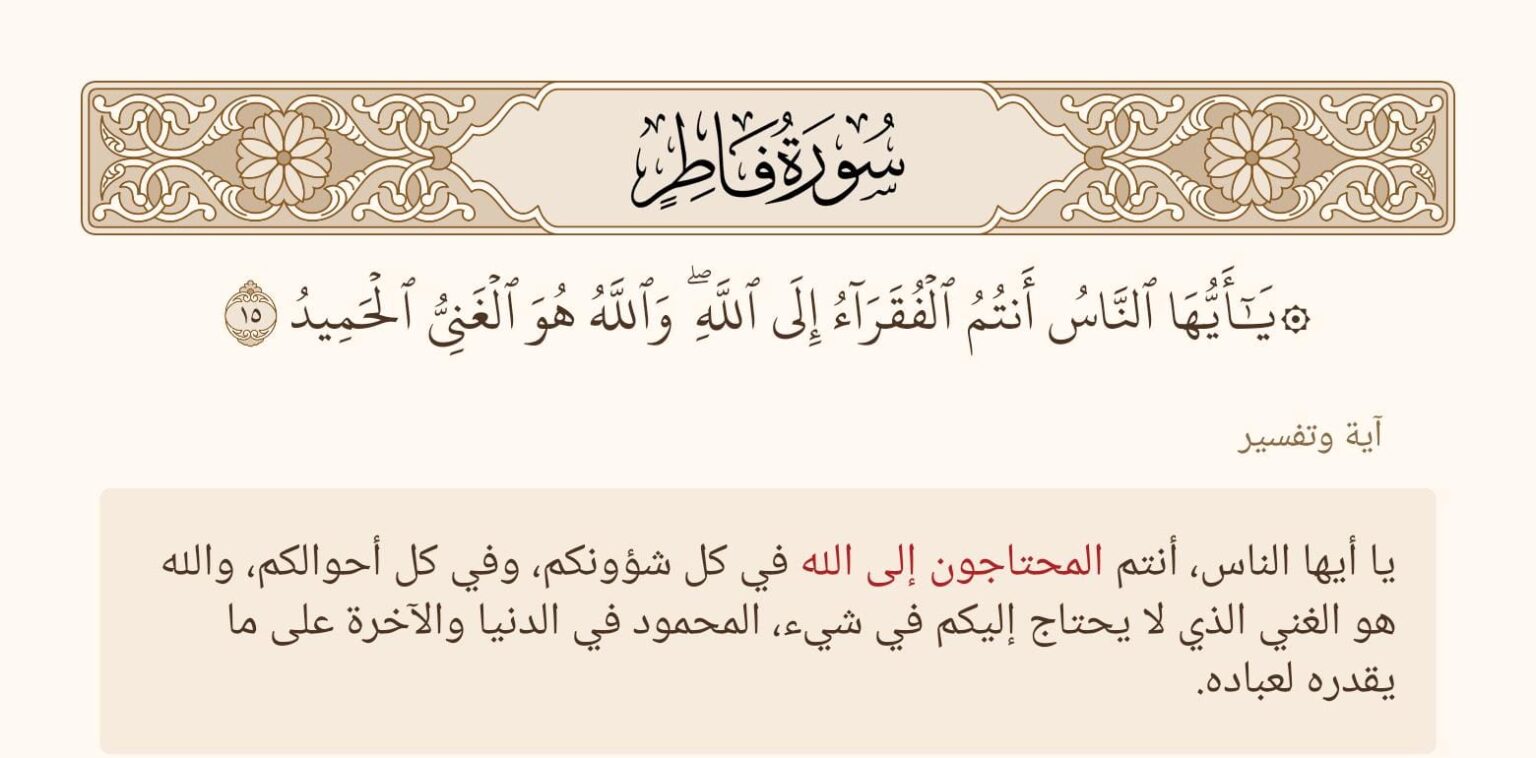 سُورَةُ فَاطِرٍ
۞ يَـٰٓأَيُّهَا ٱلنَّاسُ أَنتُمُ ٱلۡفُقَرَآءُ إِلَى ٱللَّهِۖ وَٱللَّهُ هُوَ ٱلۡغَنِيُّ ٱلۡحَمِيدُ ١٥
آية وتفسير
يا أيها الناس، أنتم المحتاجون إلى الله في كل شؤونكم، وفي كل أحوالكم، والله
هو الغني الذي لا يحتاج إليكم في شيء، المحمود في الدنيا والآخرة على ما
يقدره لعباده.